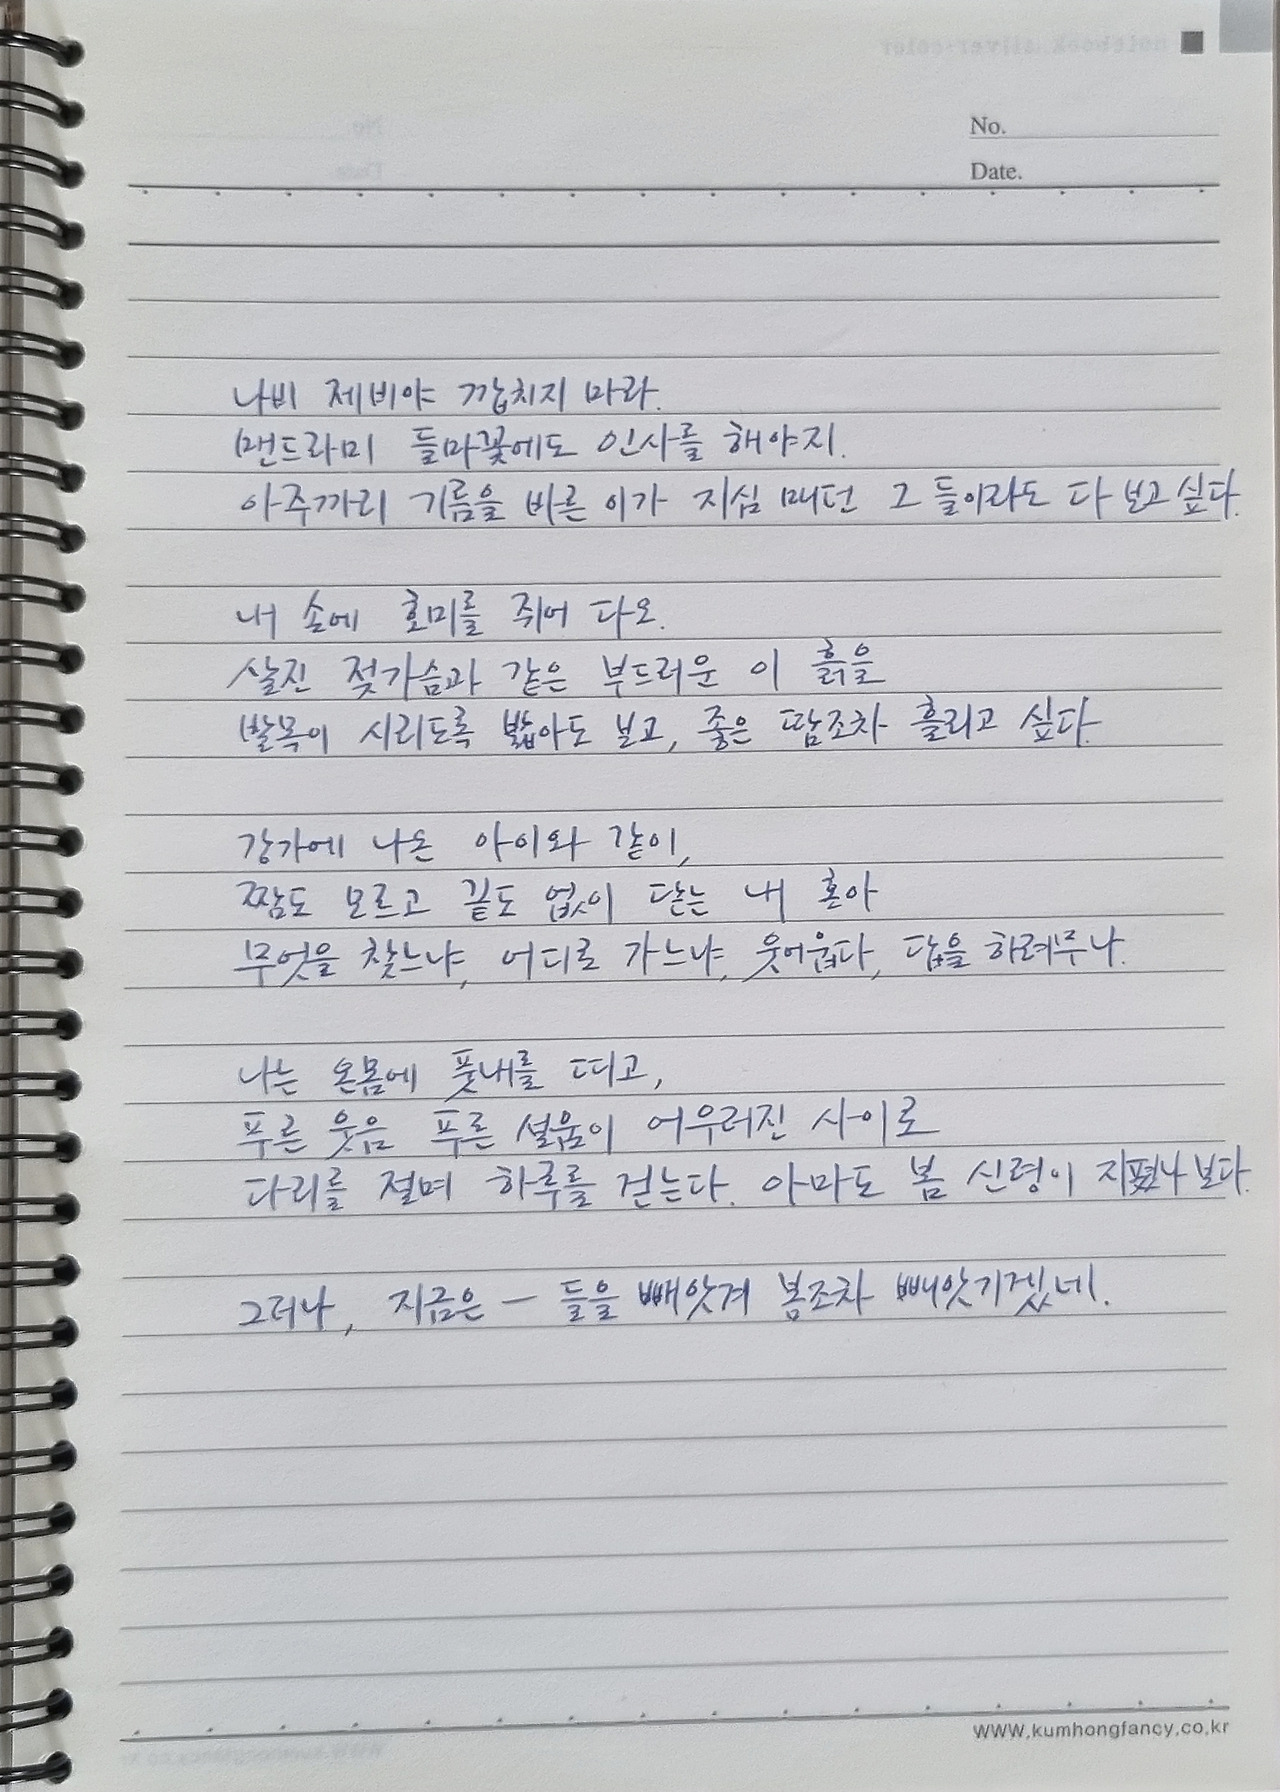 notebook silver-color
No.
Date.
나비 제비야 깝치지 마라.
맨드라미 들마꽃에도 인사를 해야지.
아주까리 기름을 바른 이가 지심 매던 그 들이라도 다 보고 싶다.
내 손에 호미를 쥐어 다오.
살진 젖가슴과 같은 부드러운 이 흙을
발목이 시리도록 밟아도 보고, 좋은 땀조차 흘리고 싶다.
강가에 나온 아이와 같이,
짬도 모르고 끝도 없이 닫는 내 혼아
무엇을 찾느냐, 어디로 가느냐, 웃어웁다, 답을 하려무나.
나는 온몸에 풋내를 띠고,
푸른 웃음 푸른 설움이 어우러진 사이로
다리를 절며 하루를 걷는다. 아마도 봄 신령이 지폈나 보다.
그러나, 지금은 — 들을 빼앗겨 봄조차 빼앗기겠네.
www.kumhongfancy.co.kr